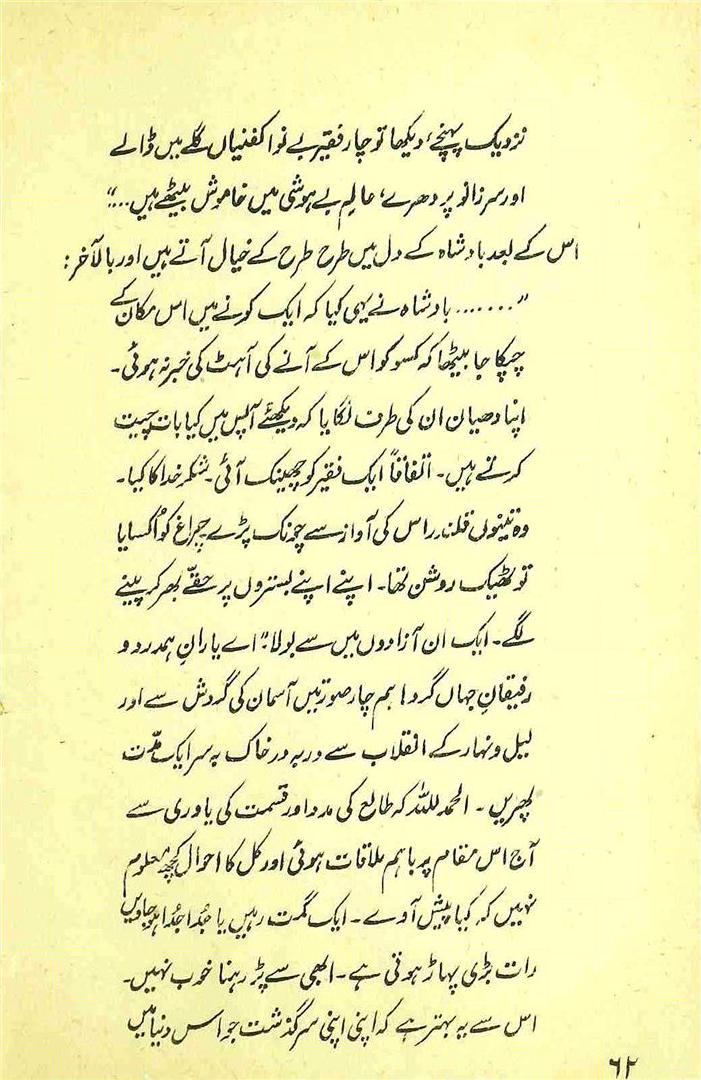 نزدیک پہنچے، دیکھا تو چار فقیر بے نوا کفنیاں گلے میں ڈالے
اور سر زانو پر دھرے، عالمِ بے ہوشی میں خاموش بیٹھے ہیں...“
اس کے بعد بادشاہ کے دل میں طرح طرح کے خیال آتے ہیں اور بالآخر:
”....... بادشاہ نے یہی کیا کہ ایک کونے میں اس مکان کے
چپکا جا بیٹھا کہ کسو کو اس کے آنے کی آہٹ کی خبر نہ ہوئی۔
اپنا دھیان ان کی طرف لگایا کہ دیکھئے آپس میں کیا بات چیت
کرتے ہیں۔ اتفاقاً ایک فقیر کو چھینک آئی۔ شکر خدا کا کیا۔
وہ تینوں قلندر اس کی آواز سے چونک پڑے چراغ کو اُکسایا
تو ٹھیک روشن تھا۔ اپنے اپنے بستروں پر حقّے بھر کر پینے
لگے۔ ایک ان آزادوں میں سے بولا: ”اے یارانِ ہمدرد و
رفیقانِ جہاں گرد! ہم چار صورتیں آسمان کی گردش سے اور
لیل و نہار کے انقلاب سے در بہ در خاک بہ سر ایک مدّت
پھریں۔ الحمد للہ کہ طالع کی مدد اور قسمت کی یاوری سے
آج اس مقام پر باہم ملاقات ہوئی اور کل کا احوال کچھ معلوم
نہیں کہ کیا پیش آوے۔ ایک گمت رہیں یا جُدا جُدا ہو جاویں
رات بڑی پہاڑ ہوتی ہے۔ ابھی سے پڑ رہنا خوب نہیں۔
اس سے یہ بہتر ہے کہ اپنی اپنی سرگذشت جو اس دنیا میں
۶۲